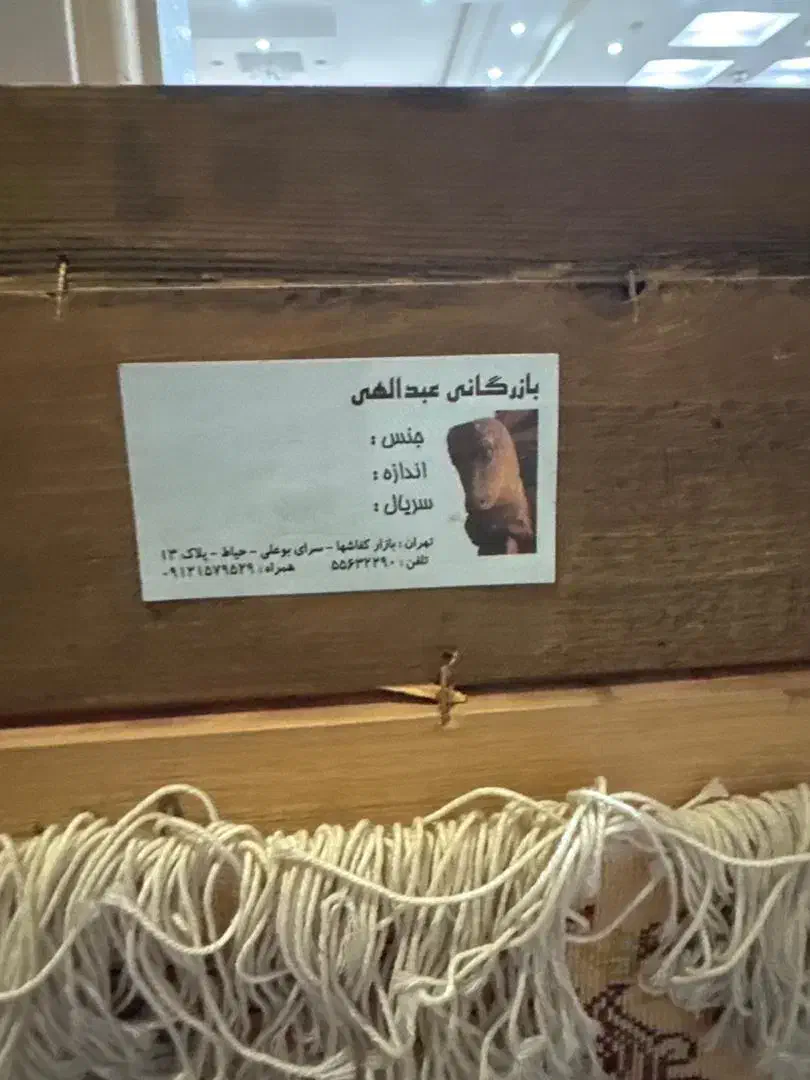 بازرگانی عبدالهی
جنس :
اندازه :
سریال :
تهران : بازار کفاشها - سرای بوعلی - حیاط - پلاک ۱۳
تلفن : ۵۵۶۳۲۲۹۰ همراه : ۰۹۱۲۱۵۷۹۵۲۹